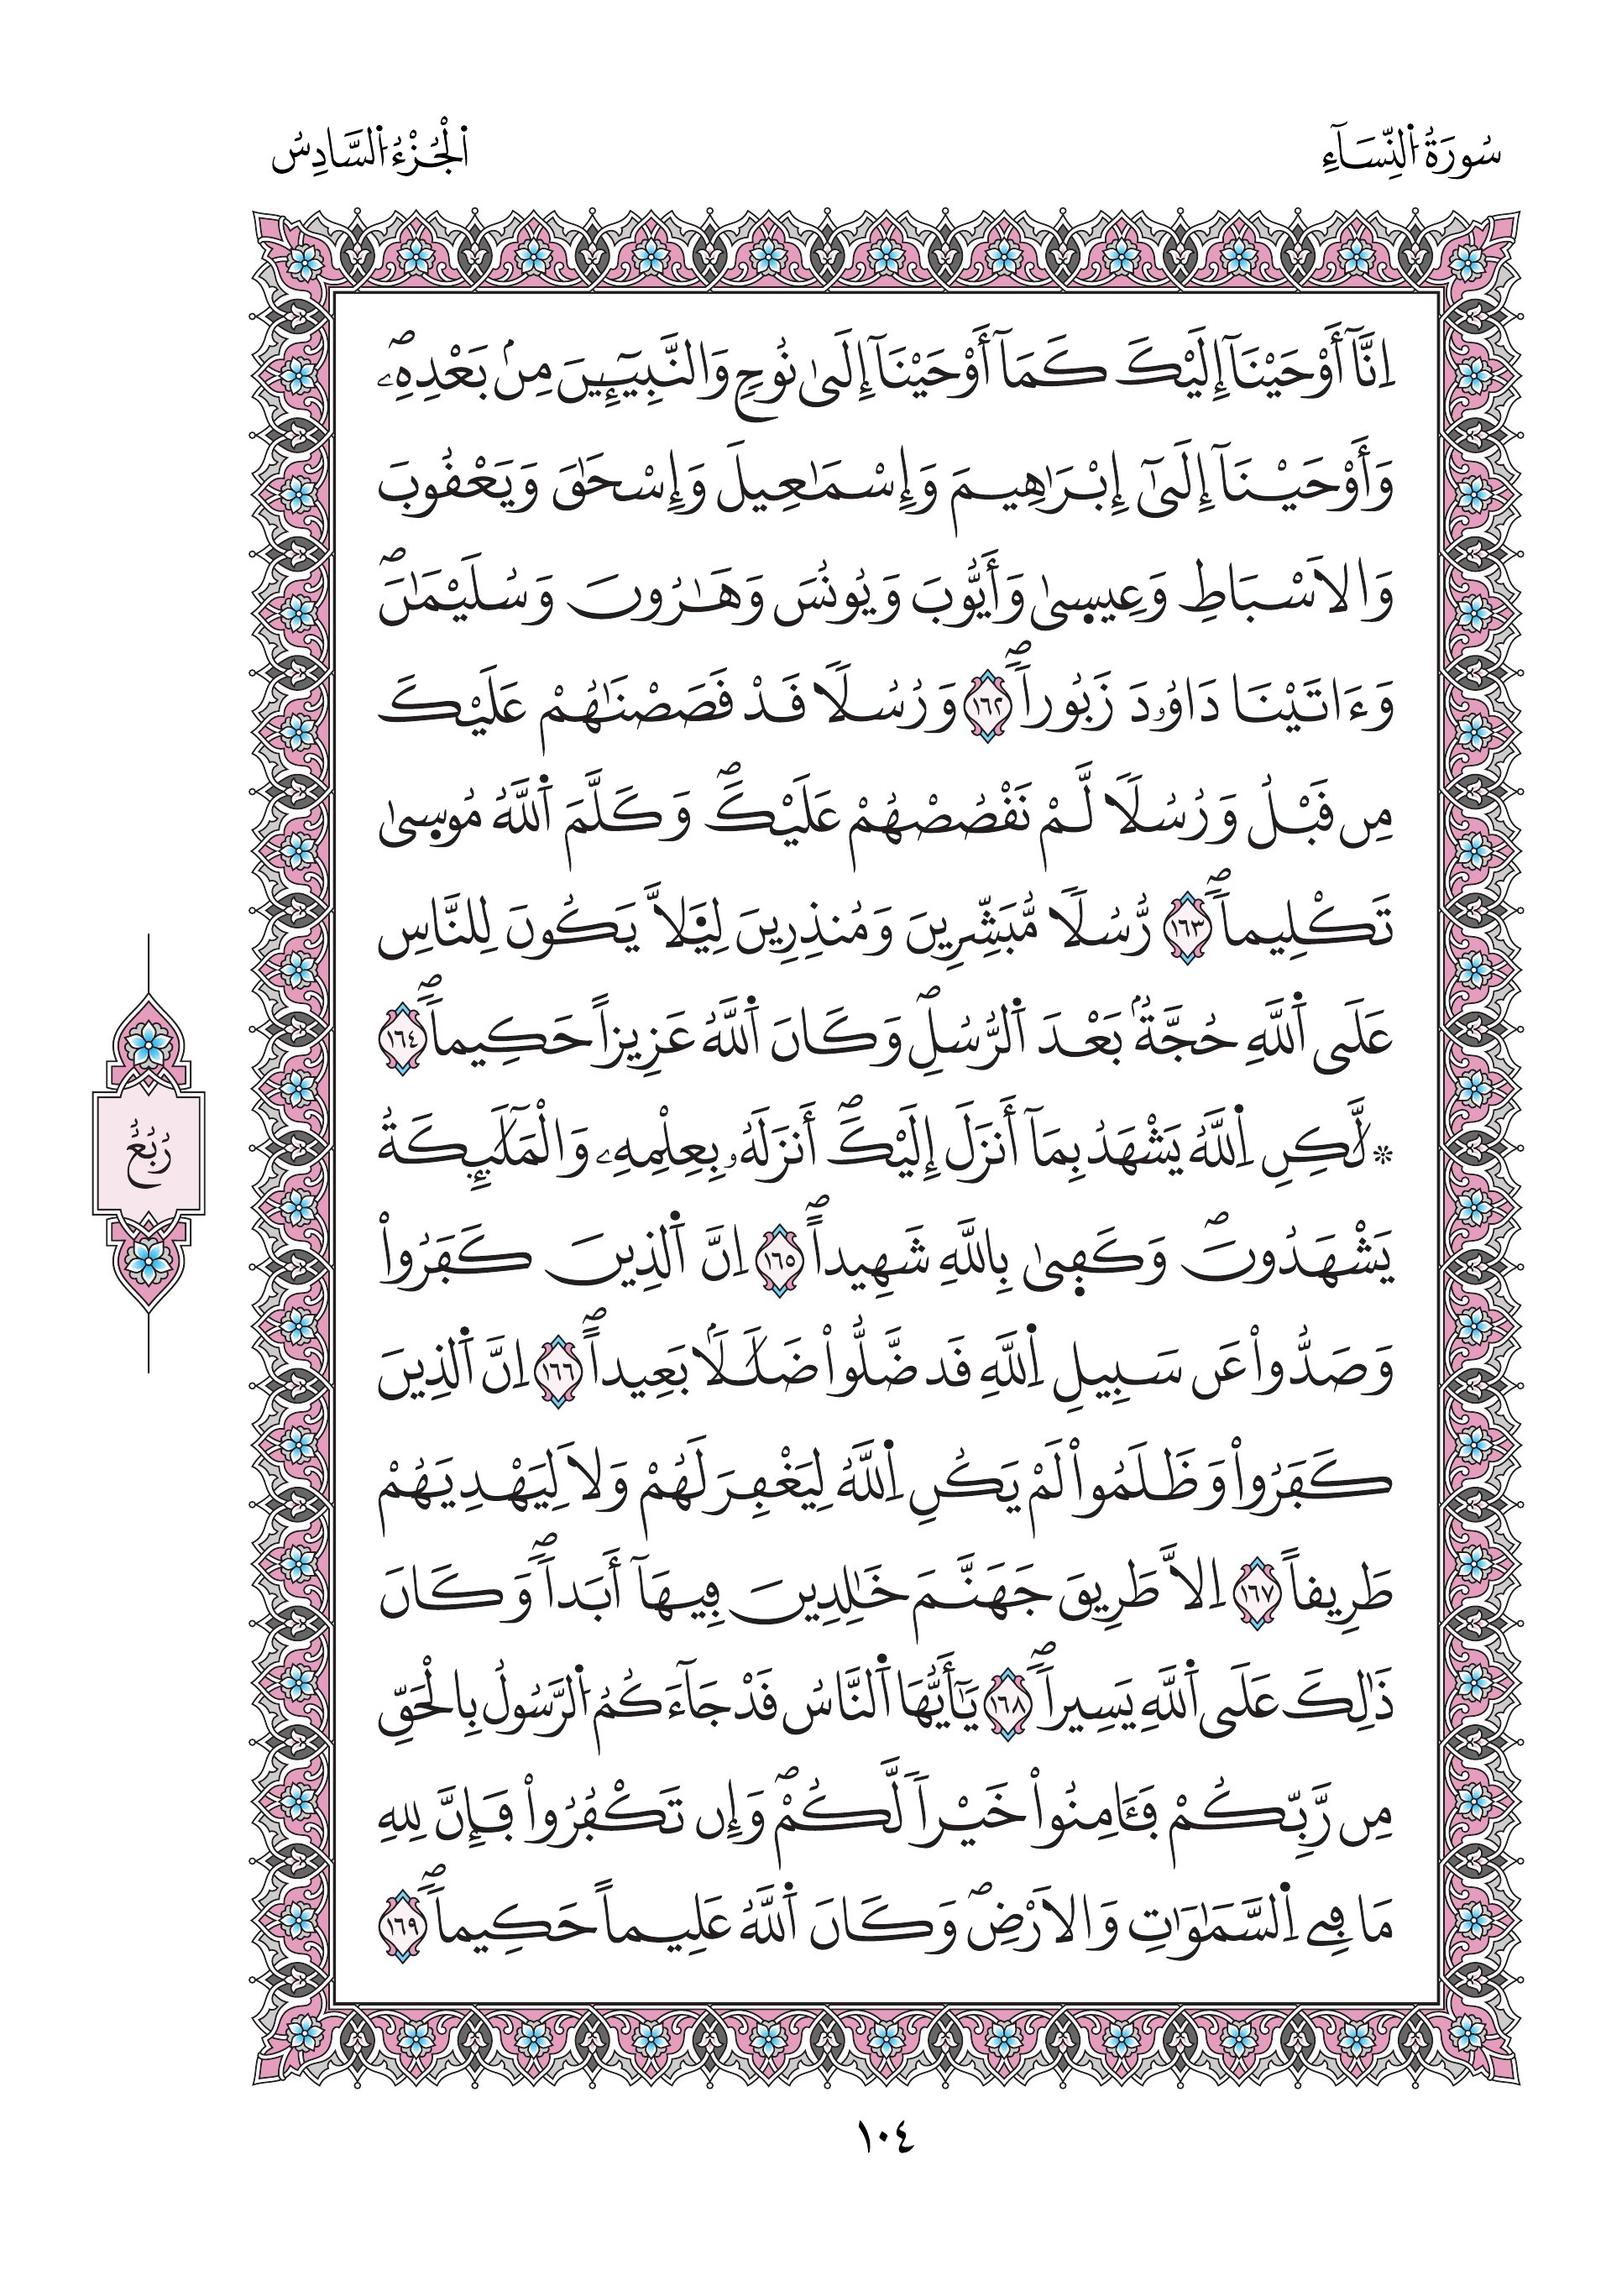 سُورَةُ اُ۬لنِّسَآءِ
اَ۬لْجُزْءُ اُ۬لسَّادِسُ
اِنَّآ أَوْحَيْنَآ إِلَيْكَ كَمَآ أَوْحَيْنَآ إِلَىٰ نُوحٖ وَالنَّبِيٓـِٕينَ مِنۢ بَعْدِهِۦۖ
وَأَوْحَيْنَآ إِلَىٰٓ إِبْرَٰهِيمَ وَإِسْمَٰعِيلَ وَإِسْحَٰقَ وَيَعْقُوبَ
وَالاَسْبَاطِ وَعِيسىٰ وَأَيُّوبَ وَيُونُسَ وَهَٰرُونَ وَسُلَيْمَٰنَۖ
وَءَاتَيْنَا دَاوُۥدَ زَبُوراٗۖ ١٦٢ وَرُسُلاٗ قَدْ قَصَصْنَٰهُمْ عَلَيْكَ
مِن قَبْلُ وَرُسُلاٗ لَّمْ نَقْصُصْهُمْ عَلَيْكَۖ وَكَلَّمَ اَ۬للَّهُ مُوسىٰ
تَكْلِيماٗۖ ١٦٣ رُّسُلاٗ مُّبَشِّرِينَ وَمُنذِرِينَ لِيَ۬لاَّ يَكُونَ لِلنَّاسِ
عَلَى اَ۬للَّهِ حُجَّةُۢ بَعْدَ اَ۬لرُّسُلِۖ وَكَانَ اَ۬للَّهُ عَزِيزاً حَكِيماٗۖ ١٦٤
۞لَّٰكِنِ اِ۬للَّهُ يَشْهَدُ بِمَآ أَنزَلَ إِلَيْكَۖ أَنزَلَهُۥ بِعِلْمِهِۦ وَالْمَلَٰٓئِكَةُ
يَشْهَدُونَۖ وَكَفىٰ بِاللَّهِ شَهِيداًۖ ١٦٥ اِنَّ اَ۬لذِينَ كَفَرُواْ
وَصَدُّواْ عَن سَبِيلِ اِ۬للَّهِ قَد ضَّلُّواْ ضَلَٰلاَۢ بَعِيداًۖ ١٦٦ اِنَّ اَ۬لذِينَ
كَفَرُواْ وَظَلَمُواْ لَمْ يَكُنِ اِ۬للَّهُ لِيَغْفِرَ لَهُمْ وَلاَ لِيَهْدِيَهُمْ
طَرِيقاً ١٦٧ اِلاَّ طَرِيقَ جَهَنَّمَ خَٰلِدِينَ فِيهَآ أَبَداٗۖ وَكَانَ
ذَٰلِكَ عَلَى اَ۬للَّهِ يَسِيراٗۖ ١٦٨ يَٰٓأَيُّهَا اَ۬لنَّاسُ قَدْ جَآءَكُمُ اُ۬لرَّسُولُ بِالْحَقِّ
مِن رَّبِّكُمْ فَـَٔامِنُواْ خَيْراٗ لَّكُمْۖ وَإِن تَكْفُرُواْ فَإِنَّ لِلهِ
مَا فِے اِ۬لسَّمَٰوَٰتِ وَالاَرْضِۖ وَكَانَ اَ۬للَّهُ عَلِيماً حَكِيماٗۖ ١٦٩
رُبُعُ
١٠٤